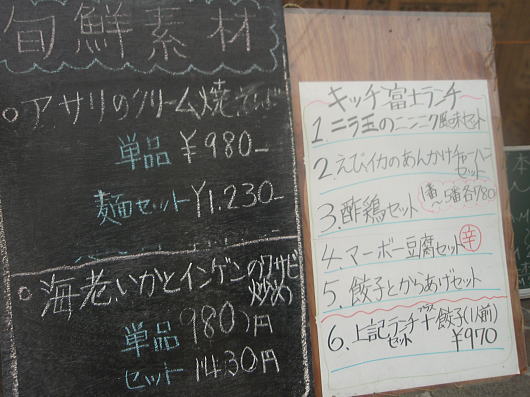 旬鮮素材
○アサリのクリーム焼そば
単品 ¥980-
麺セット ¥1.230-
○海老、いかとインゲンのワサビ
炒め
単品 980円
セット 1430円
キッチ富士ランチ
1 ニラ玉のニンニク風味セット
2.えびイカのあんかけチャーハン
セット
3.酢鶏セット 1番～5番各780
4.マーボー豆腐セット 辛
5.餃子とからあげセット
6.上記ランチセットプラス+餃子(1人前)
¥970